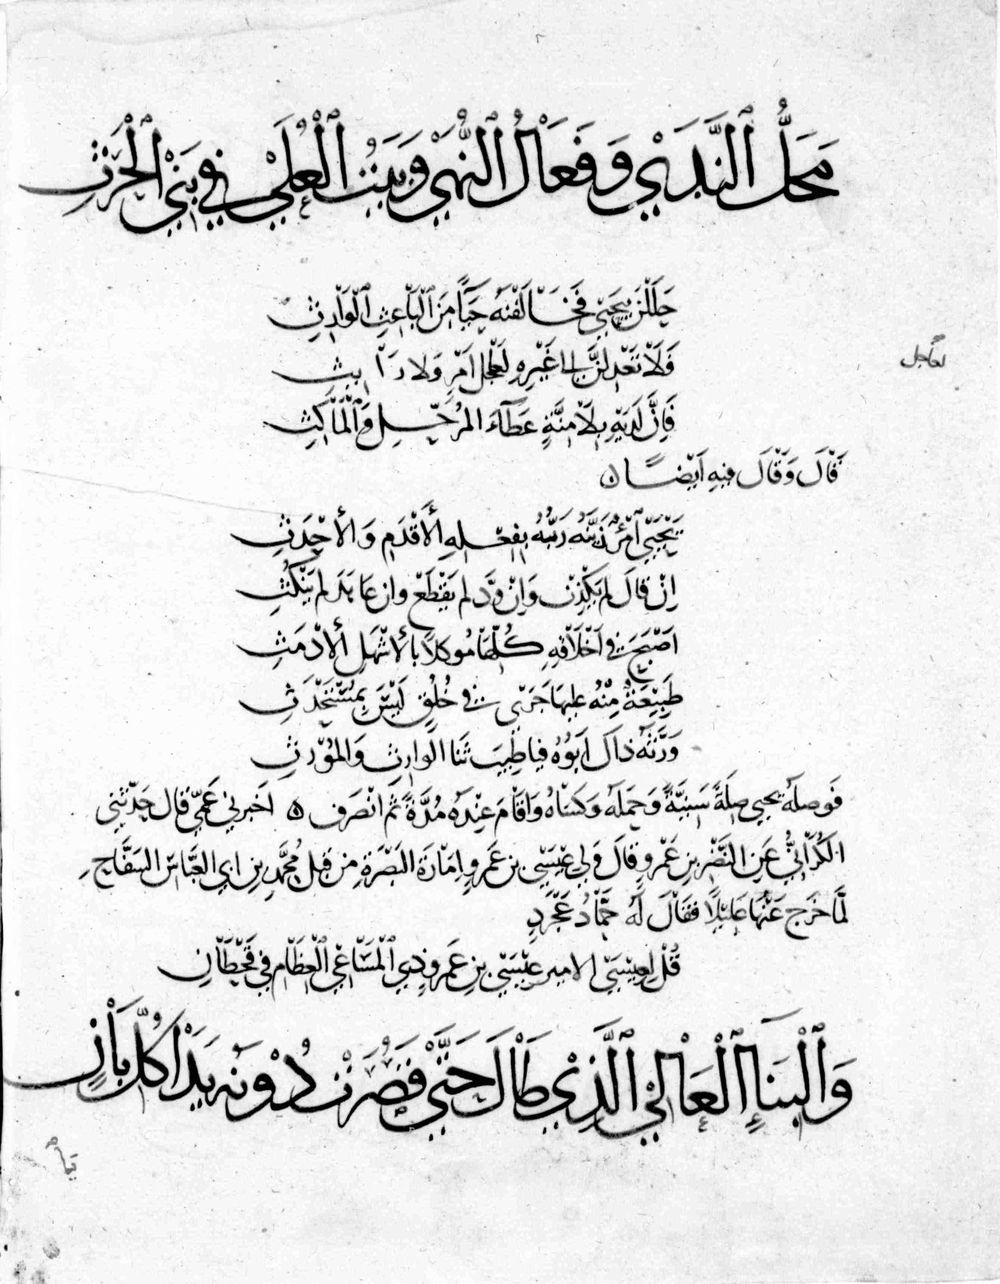 مَحَلُّ النَّدَىٰ وَفَعَالُ النُّهَىٰ وَبَيْتُ الْعُلَىٰ فِي بَنِي الْحَرْثِ
حَلَلْنَ بِيَحْيَىٰ فَحَالَفْنَهُ حَيًّا مِنَ الْبَاعِثِ الْوَارِثِ
لعاجل
وَلَا تَعْدِلَنَّ إِلَىٰ غَيْرِهِ لِعَاجِلِ أَمْرٍ وَلَا رَايِثِ
فَإِنَّ لَدَيْهِ بِلَا مِنَّةٍ عَطَاءَ الْمُرَحِّلِ وَالْمَاكِثِ
قَالَ وَقَالَ فِيهِ أَيْضًا ه
يَحْيَىٰ امْرُؤٌ زَيَّنَهُ رَبُّهُ بِفِعْلِهِ الْأَقْدَمِ وَالْأَحْدَثِ
إِنْ قَالَ لَمْ يَكْذِبْ وَإِنْ وَدَّ لَمْ يَقْطَعْ وَإِنْ عَاهَدَ لَمْ يَنْكُثِ
أَصْبَحَ فِي أَخْلَاقِهِ كُلِّهَا مُوَكَّلًا بِالْأَسْهَلِ الْأَدْمَثِ
طَبِيعَةٌ مِنْهُ عَلَيْهَا جَرَىٰ فِي خُلُقٍ لَيْسَ بِمُسْتَحْدَثِ
وَرَّثَهُ ذَاكَ أَبُوهُ فَيَا طِيبَ ثَنَا الْوَارِثِ وَالْمُوْرِثِ
فَوَصَلَهُ يَحْيَى صِلَةً سَنِيَّةً وَحَمَلَهُ وَكَسَاهُ وَأَقَامَ عِنْدَهُ مُدَّةً ثُمَّ انْصَرَفَ ه أَخْبَرَنِي عَمِّي قَالَ حَدَّثَنِي
الْكُرَانِيُّ عَنِ النَّضْرِ بْنِ عَمْرٍو قَالَ وَلِيَ عِيسَىٰ بْنُ عَمْرٍو إِمَارَةَ الْبَصْرَةِ مِنْ قِبَلِ مُحَمَّدِ بْنِ أَبِي الْعَبَّاسِ السَّفَّاحِ
لَمَّا خَرَجَ عَنْهَا عَلِيلًا فَقَالَ لَهُ حَمَّادُ عَجْرَدٍ
قُلْ لِعِيسَىٰ الْأَمِيرِ عِيسَىٰ بْنِ عَمْرٍو ذِي الْمَسَاعِي الْعِظَامِ فِي قَحْطَانِ
وَالْبِنَاءِ الْعَالِي الَّذِي طَالَ حَتَّىٰ قَصُرَتْ دُونَهُ يَدَا كُلِّ بَانِ